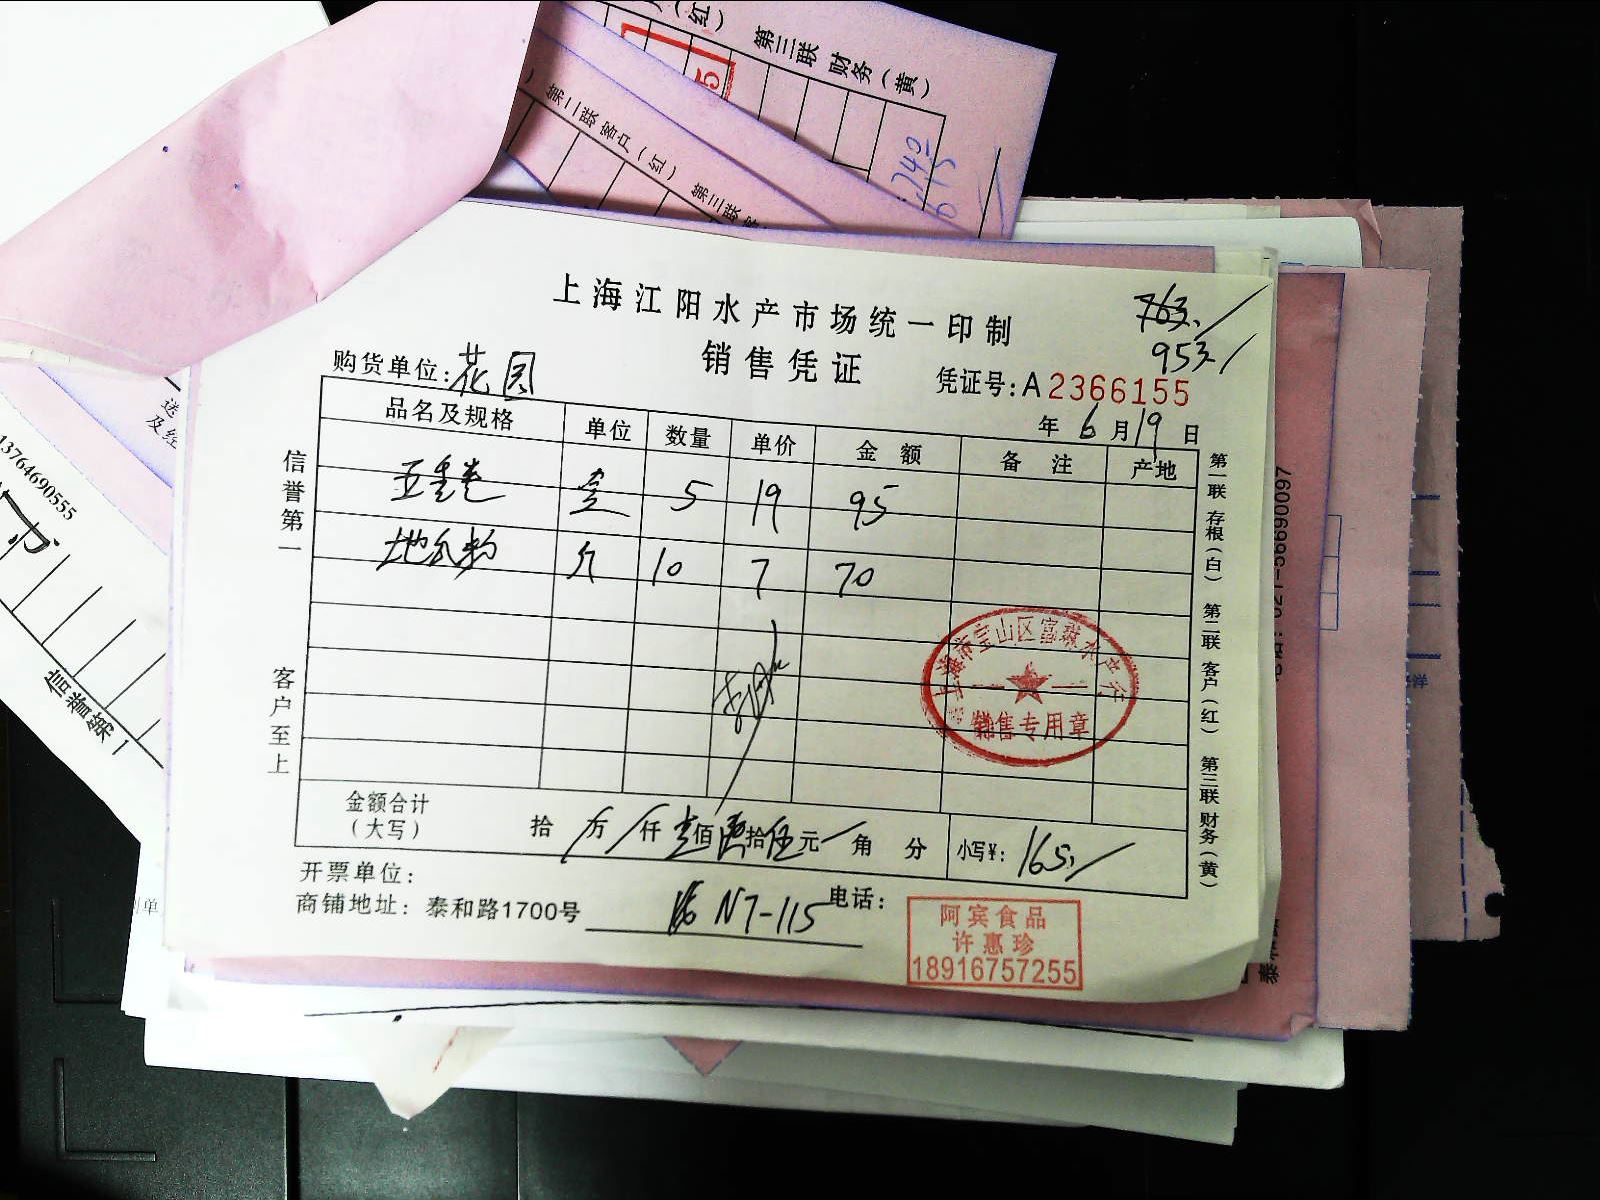 (红) 第三联 财务(黄)
5
第二联 客户(红) 第三联
送
及经
13764690555
信誉第一
上海江阳水产市场统一印制
763.
953.
销售凭证
购货单位:花园
凭证号:A 2366155
年 6月19日
品名及规格 单位 数量 单价 金额 备注 产地
5 19 95
地瓜粉 斤 10 7 70
信誉第一
客户至上
第一联 存根(白) 第二联 客户(红) 第三联 财务(黄)
销售专用章
金额合计
(大写) 拾 万 仟 壹佰陆拾伍元 角 分 小写¥: 165.
开票单位:
商铺地址: 泰和路1700号 N7-115 电话:
阿宾食品
许惠珍
18916757255
021-56690097